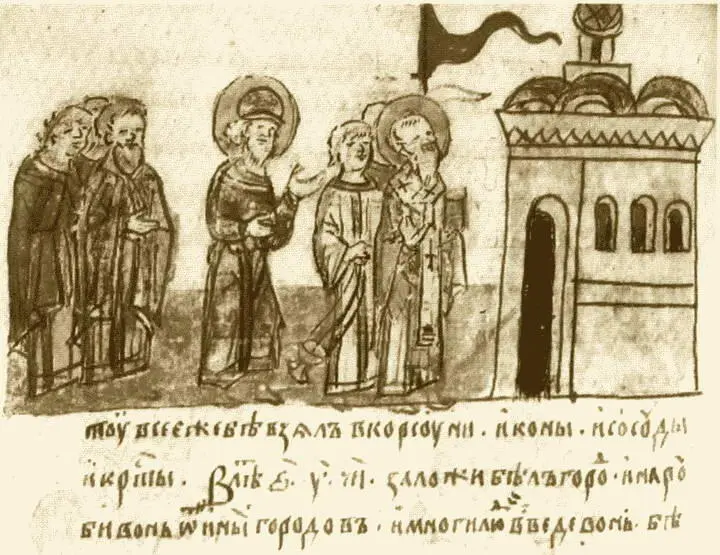 тоу все еже бѣ взѧлъ в корсоуни · иконы · и сосоуды
и крⷭ҇ты · В лⷮѣ · ҂ѕ҃ · у҃ · ч҃ · заложи бѣлъгороⷣ · и наро
би вонь ѿ инⷯы городовъ · и многи люⷣ въведе вонь · бѣ